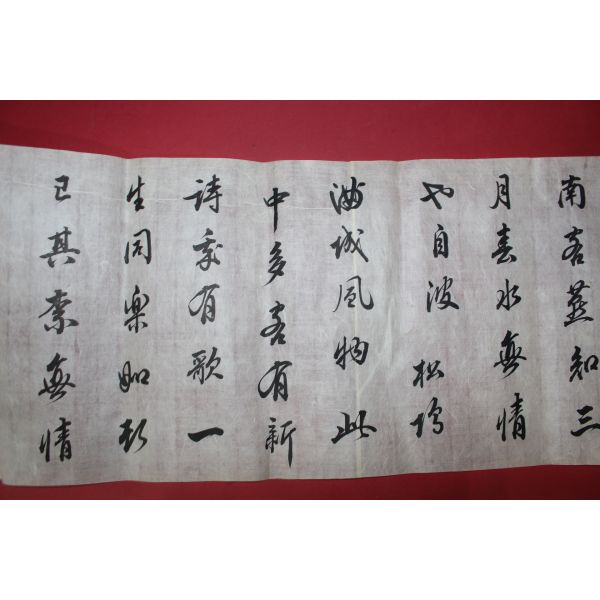 南客燕知三
月春水無情
也自波 松塢
滿城風物此
中多客有新
詩我有歌一
生同樂如
已其柰無情